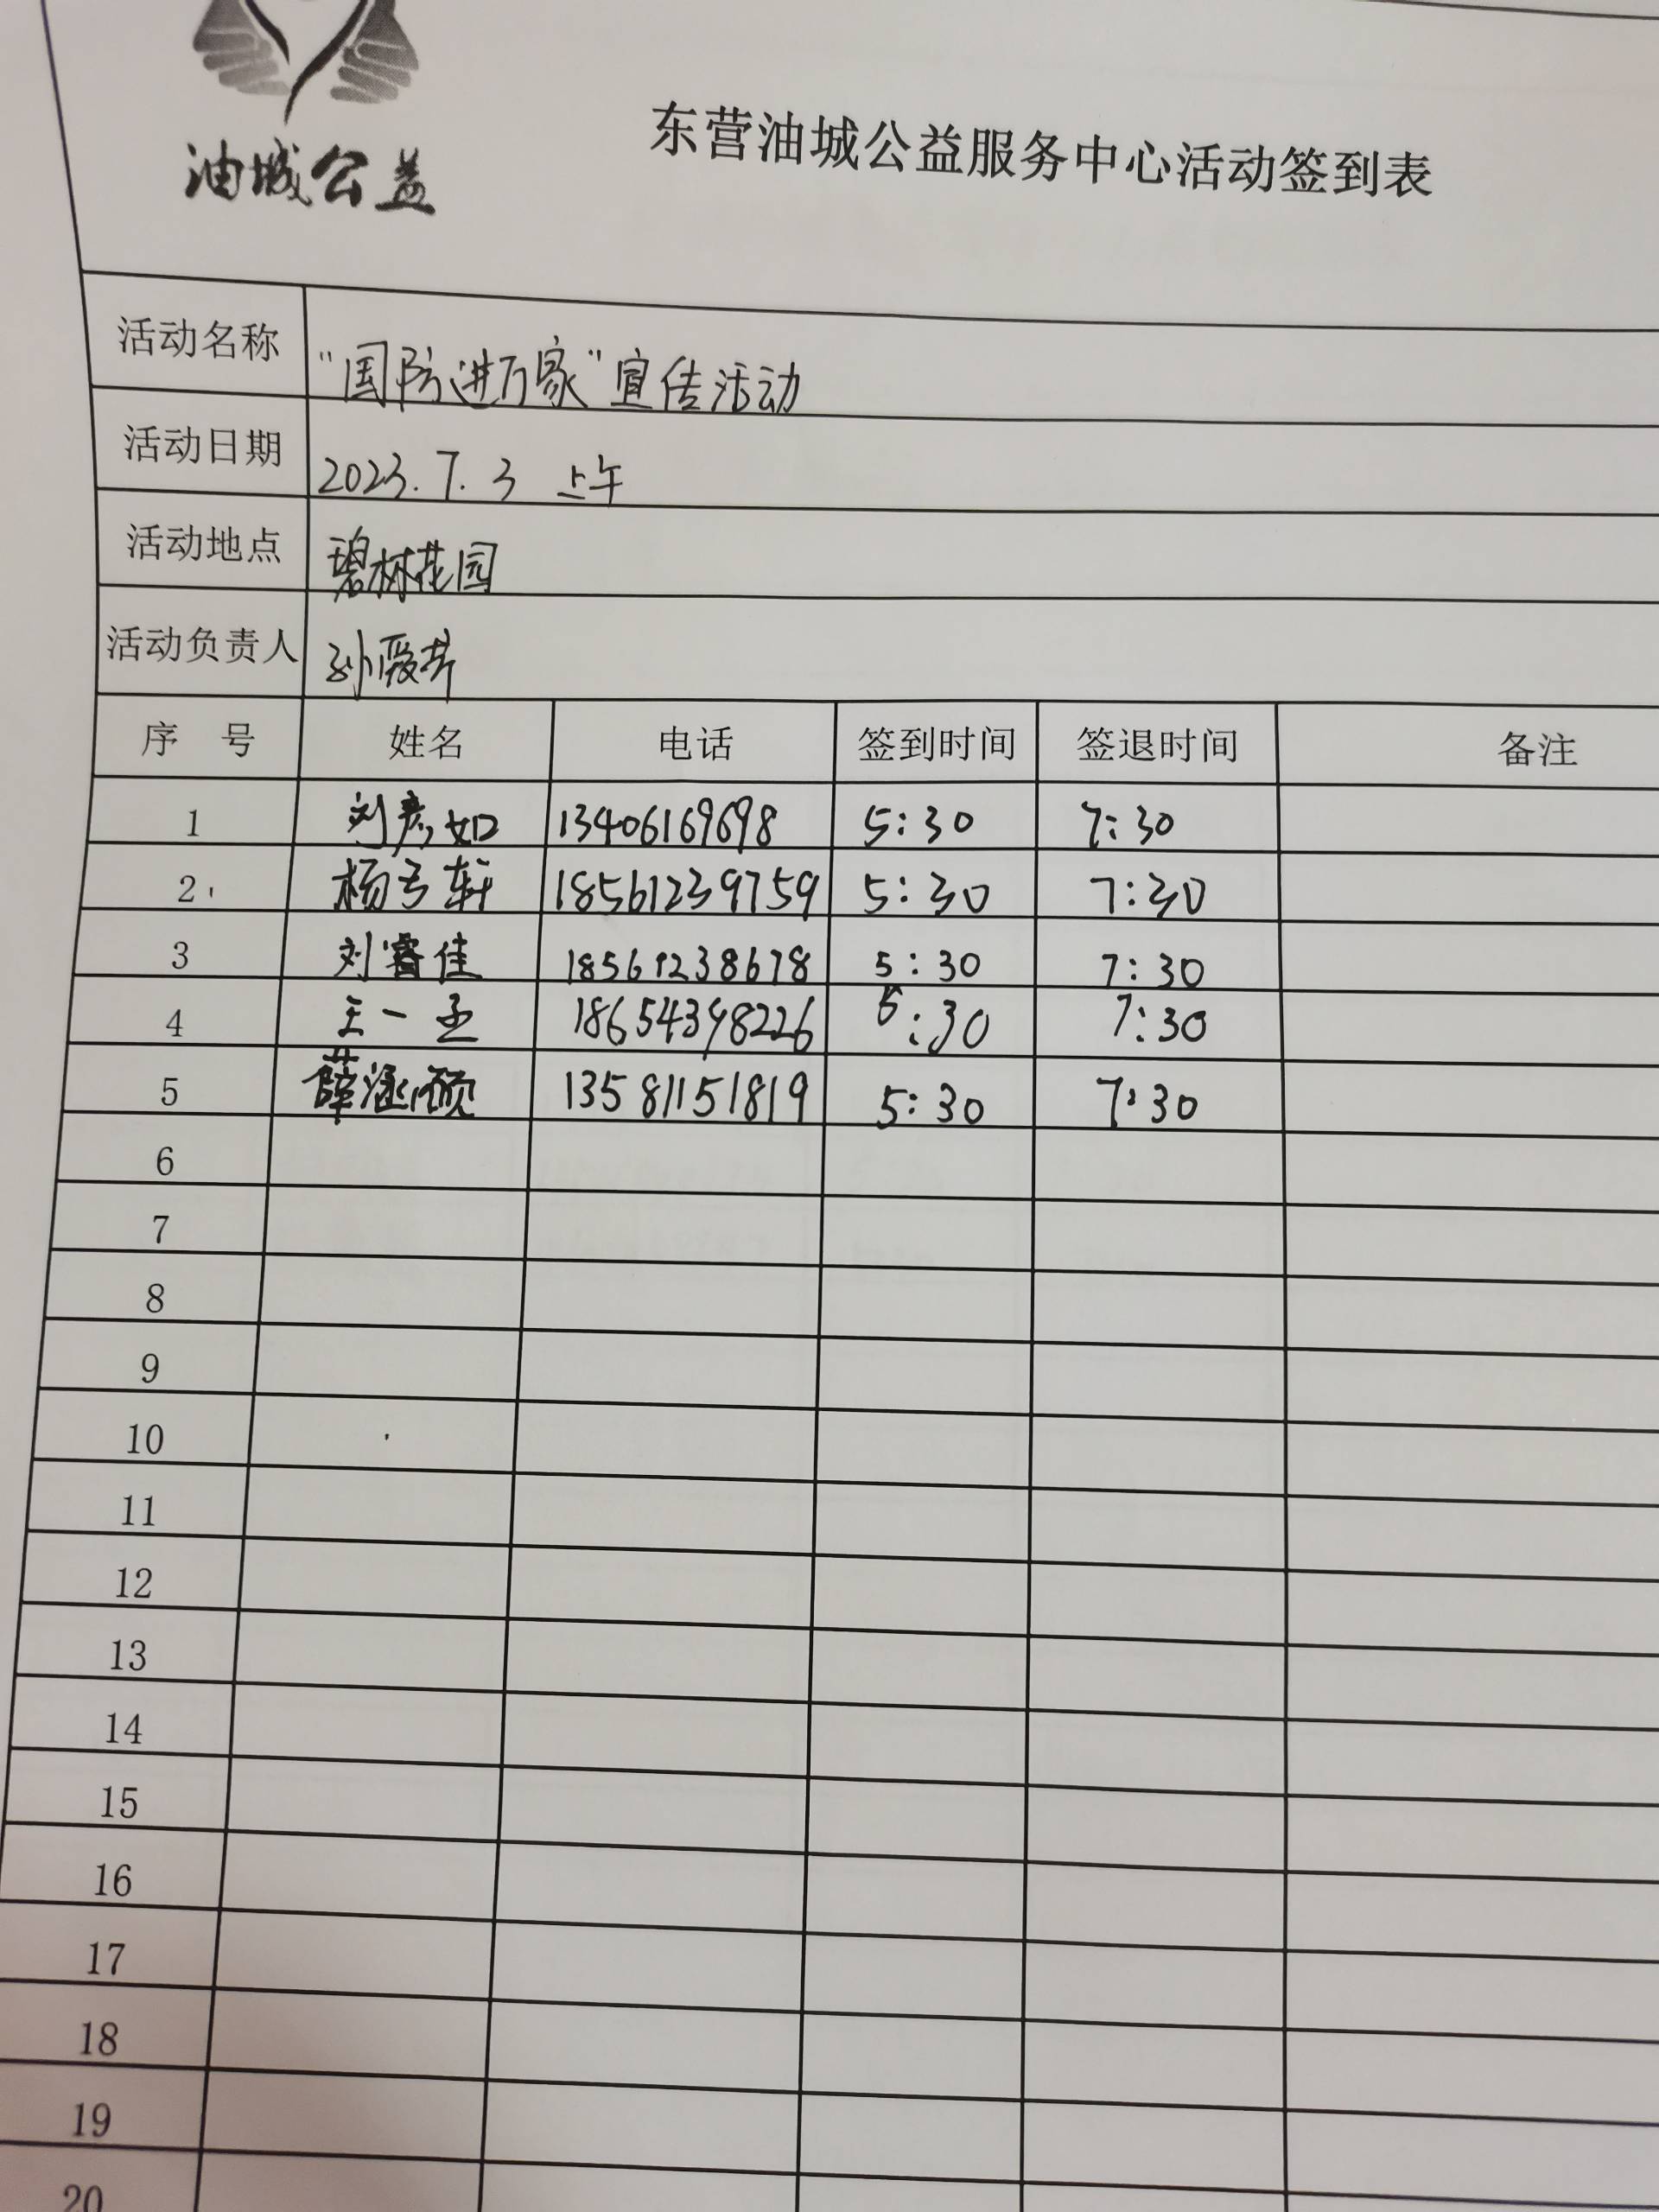 油城公益
东营油城公益服务中心活动签到表
活动名称 "国防进万家"宣传活动
活动日期 2023.7.3 上午
活动地点 碧林花园
活动负责人 孙爱芹
序 号 姓名 电话 签到时间 签退时间 备注
1 刘彦如 13406169698 5:30 7:30
2 杨弓轩 18561239759 5:30 7:30
3 刘睿佳 18561238678 5:30 7:30
4 王一丞 18654398226 5:30 7:30
5 薛涵硕 13581151819 5:30 7:30
6
7
8
9
10
11
12
13
14
15
16
17
18
19
20